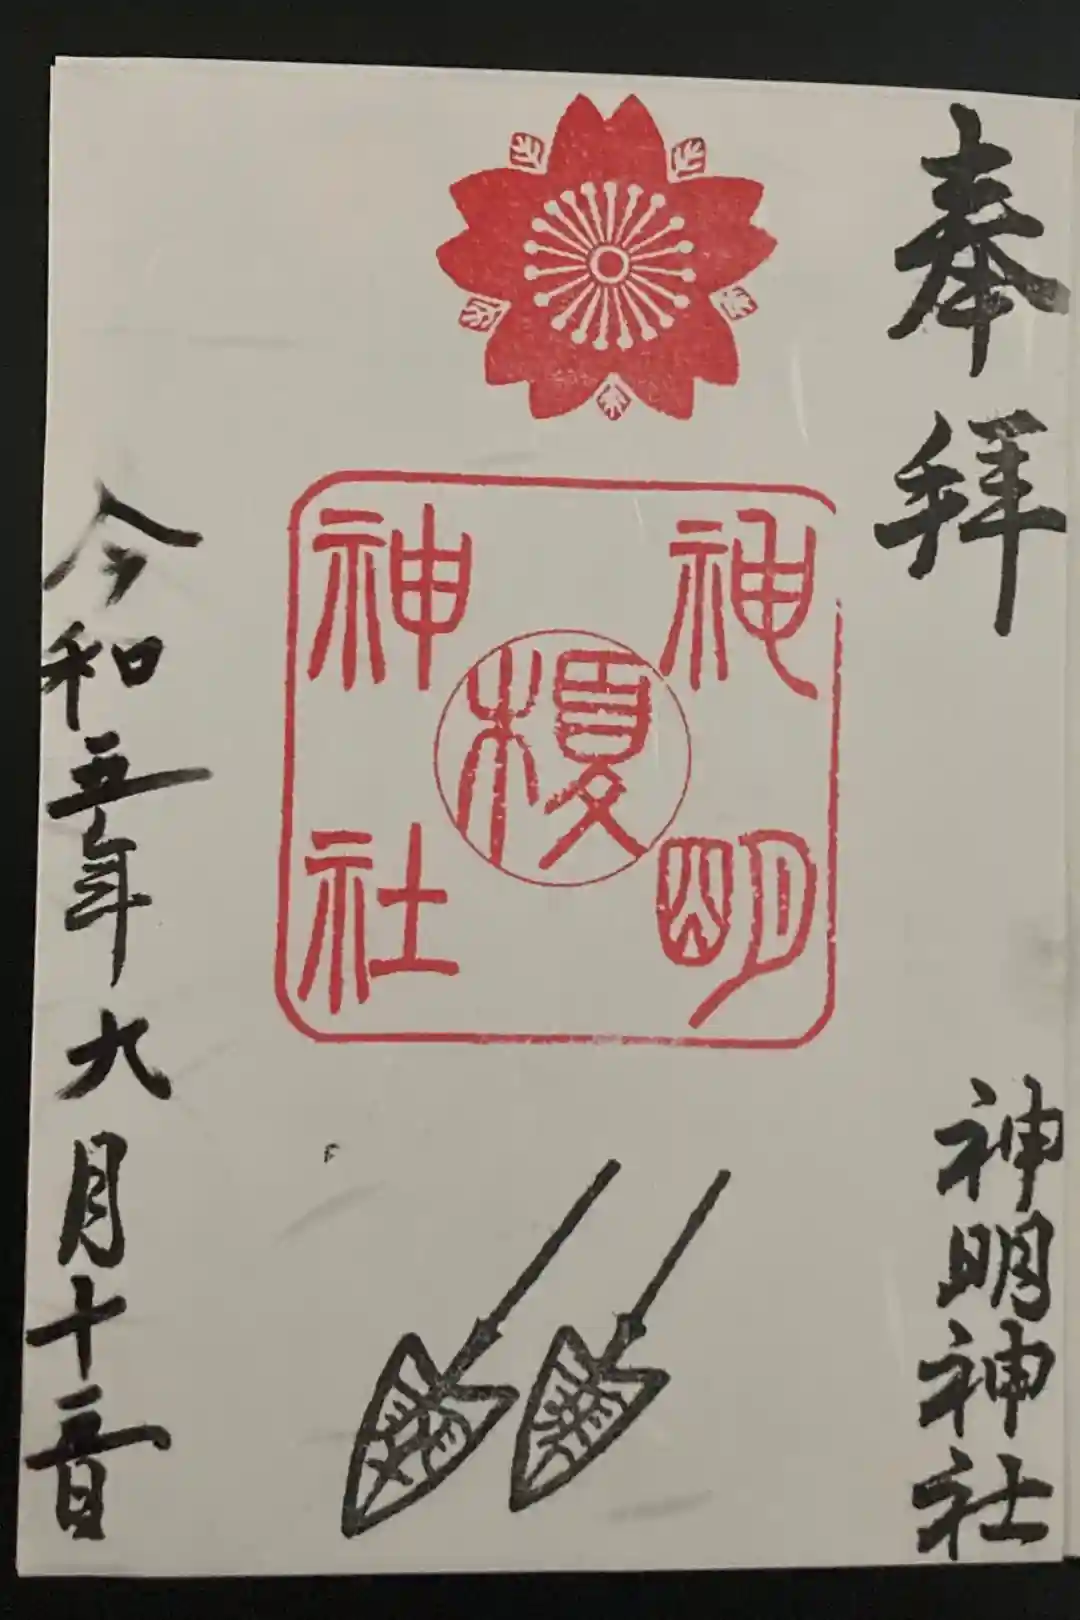 奉拝
神明神社
神明
榎
神社
令和五年九月十三日